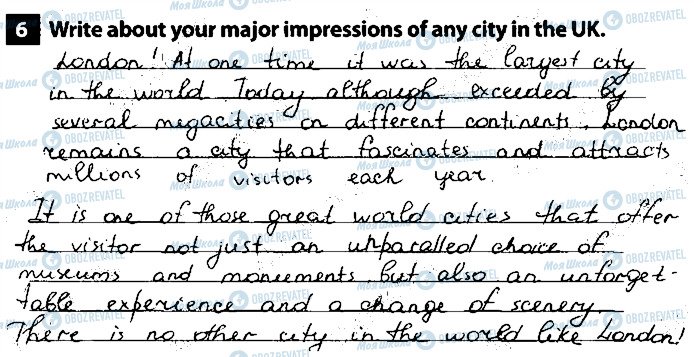 6 Write about your major impressions of any city in the UK.
London! At one time it was the largest city
in the world Today although exceeded by
several megacities on different continents, London
remains a city that fascinates and attracts
millions of visitors each year.
It is one of those great world cities that offer
the visitor not just an unparalled choice of
museums and monuments but also an unforget-
table experience and a change of scenery
There is no other city in the world like London!